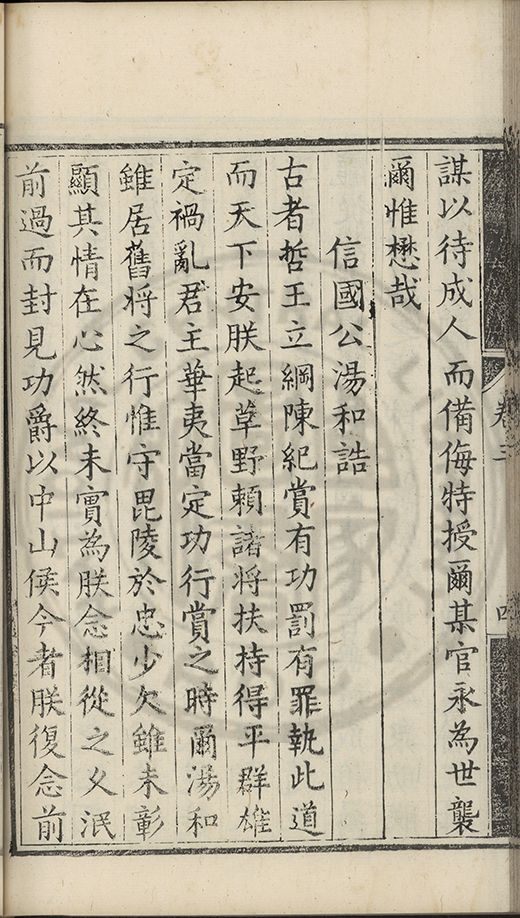 卷三
四
謀以待成人而備侮特授爾某官永為世襲
爾惟懋哉
信國公湯和誥
古者哲王立綱陳紀賞有功罰有罪執此道
而天下安朕起草野賴諸将扶持得平群雄
定禍亂君主華夷當定功行賞之時爾湯和
雖居舊将之行惟守毘陵於忠少欠雖未彰
顯其情在心然終未實為朕念相從之久泯
前過而封見功爵以中山侯今者朕復念前